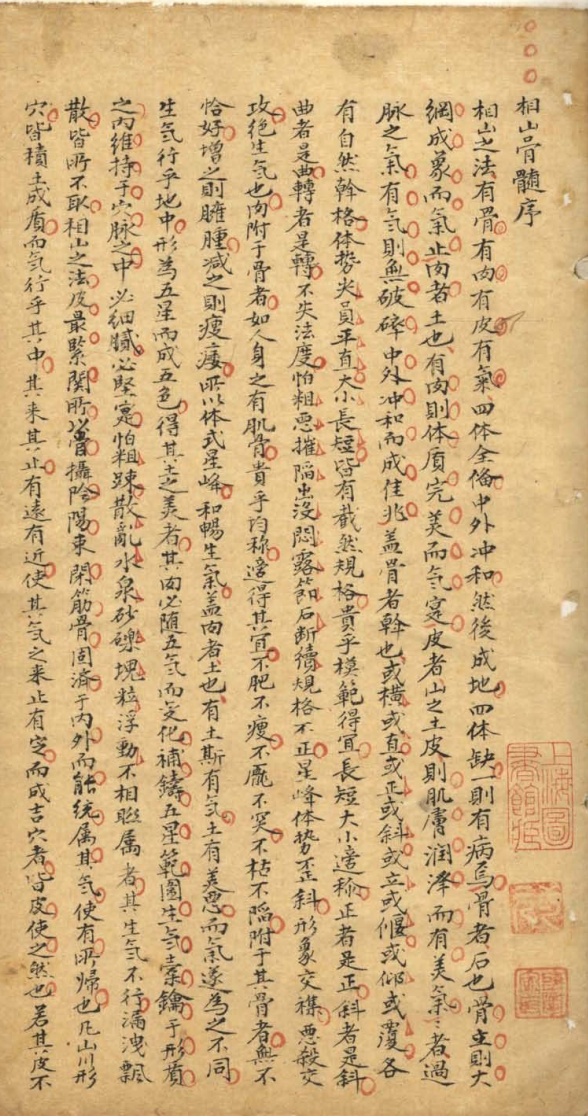 相山骨髓序
相山之法有骨有肉有皮有氣四体全偹中外冲和然後成地四体缺一則有病焉骨者石也骨立則大
綱成象而氣止肉者土也有肉則体质完美而气寔皮者山之土皮則肌膚润澤而有美氣〻者過
脉之氣有气則無破碎中外冲和而成佳兆盖骨者幹也或横或直或正或斜或立或偃或仰或覆各
有自然幹格体势尖員平直大小長短皆有截然規格貴乎模範得宜長短大小適称正者是正斜者是斜
曲者是曲轉者是轉不失法度怕粗悪摧陷出没悶露筋石断續規格不正星峰体势歪斜形象交襍悪殺交
攻绝生气也肉附于骨者如人身之有肌骨貴乎均称適得其宜不肥不瘦不麁不突不枯不陷附于其骨者無不
恰好增之則臃腫减之則瘦瘻所以体式星峰和暢生氣盖肉者土也有土斯有气土有美悪而氣遂為之不同
生气行乎地中形為五星而成五色得其土之美者其肉必随五气而变化補鑄五星範圍生气橐鑰于形質
之内维持于穴脉之中必细膩必堅寔怕粗踈散亂水泉砂礫塊粒浮動不相聮属者其生气不行漏洩飄
散皆所不取相山之法皮最緊関所以管攝阴陽束閉筋骨固济于内外而能统属其气使有所歸也凡山川形
穴皆積土成质而气行乎其中其来其止有遠有近使其气之来止有定而成吉穴者皆皮使之然也若其皮不
上海圖書館藏